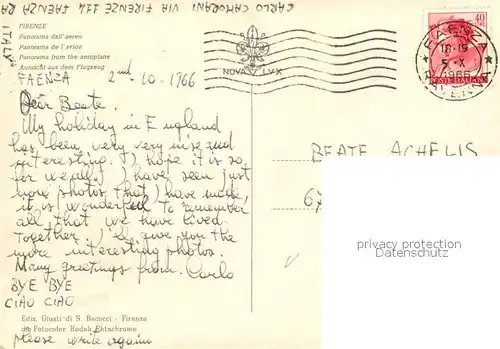 CARLO CAMORANI VIA FIRENZE 114 FAENZA RA
ITALY
FIRENZE
Panorama dall'aereo
Panorama de l'avion
Panorama from the aeroplane
Aussicht aus dem Flugzeug
FAENZA 2nd - 10 - 1966
Dear Beate.
My holiday in England
has been very very nise and
interesting. I hope it is so
for
I have seen just
photos that I have made,
it is wonderful to remember
all that we have lived
together, I'll give you the
more interesting photos.
Many greetings from. Carlo
BYE BYE
CIAO CIAO
Ediz. Giusti di S. Becocci - Firenze
da Fotocolor Kodak Ektachrome
please write again
NOVA LVX
40
FAENZA
18-19
5-X
1966
POSTE ITALIANE
BEATE ACHELIS
67
privacy protection
Datenschutz